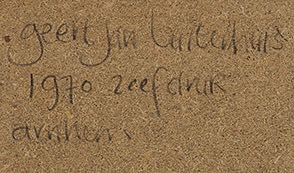 geert jan
1970 zeefdruk
arnhem